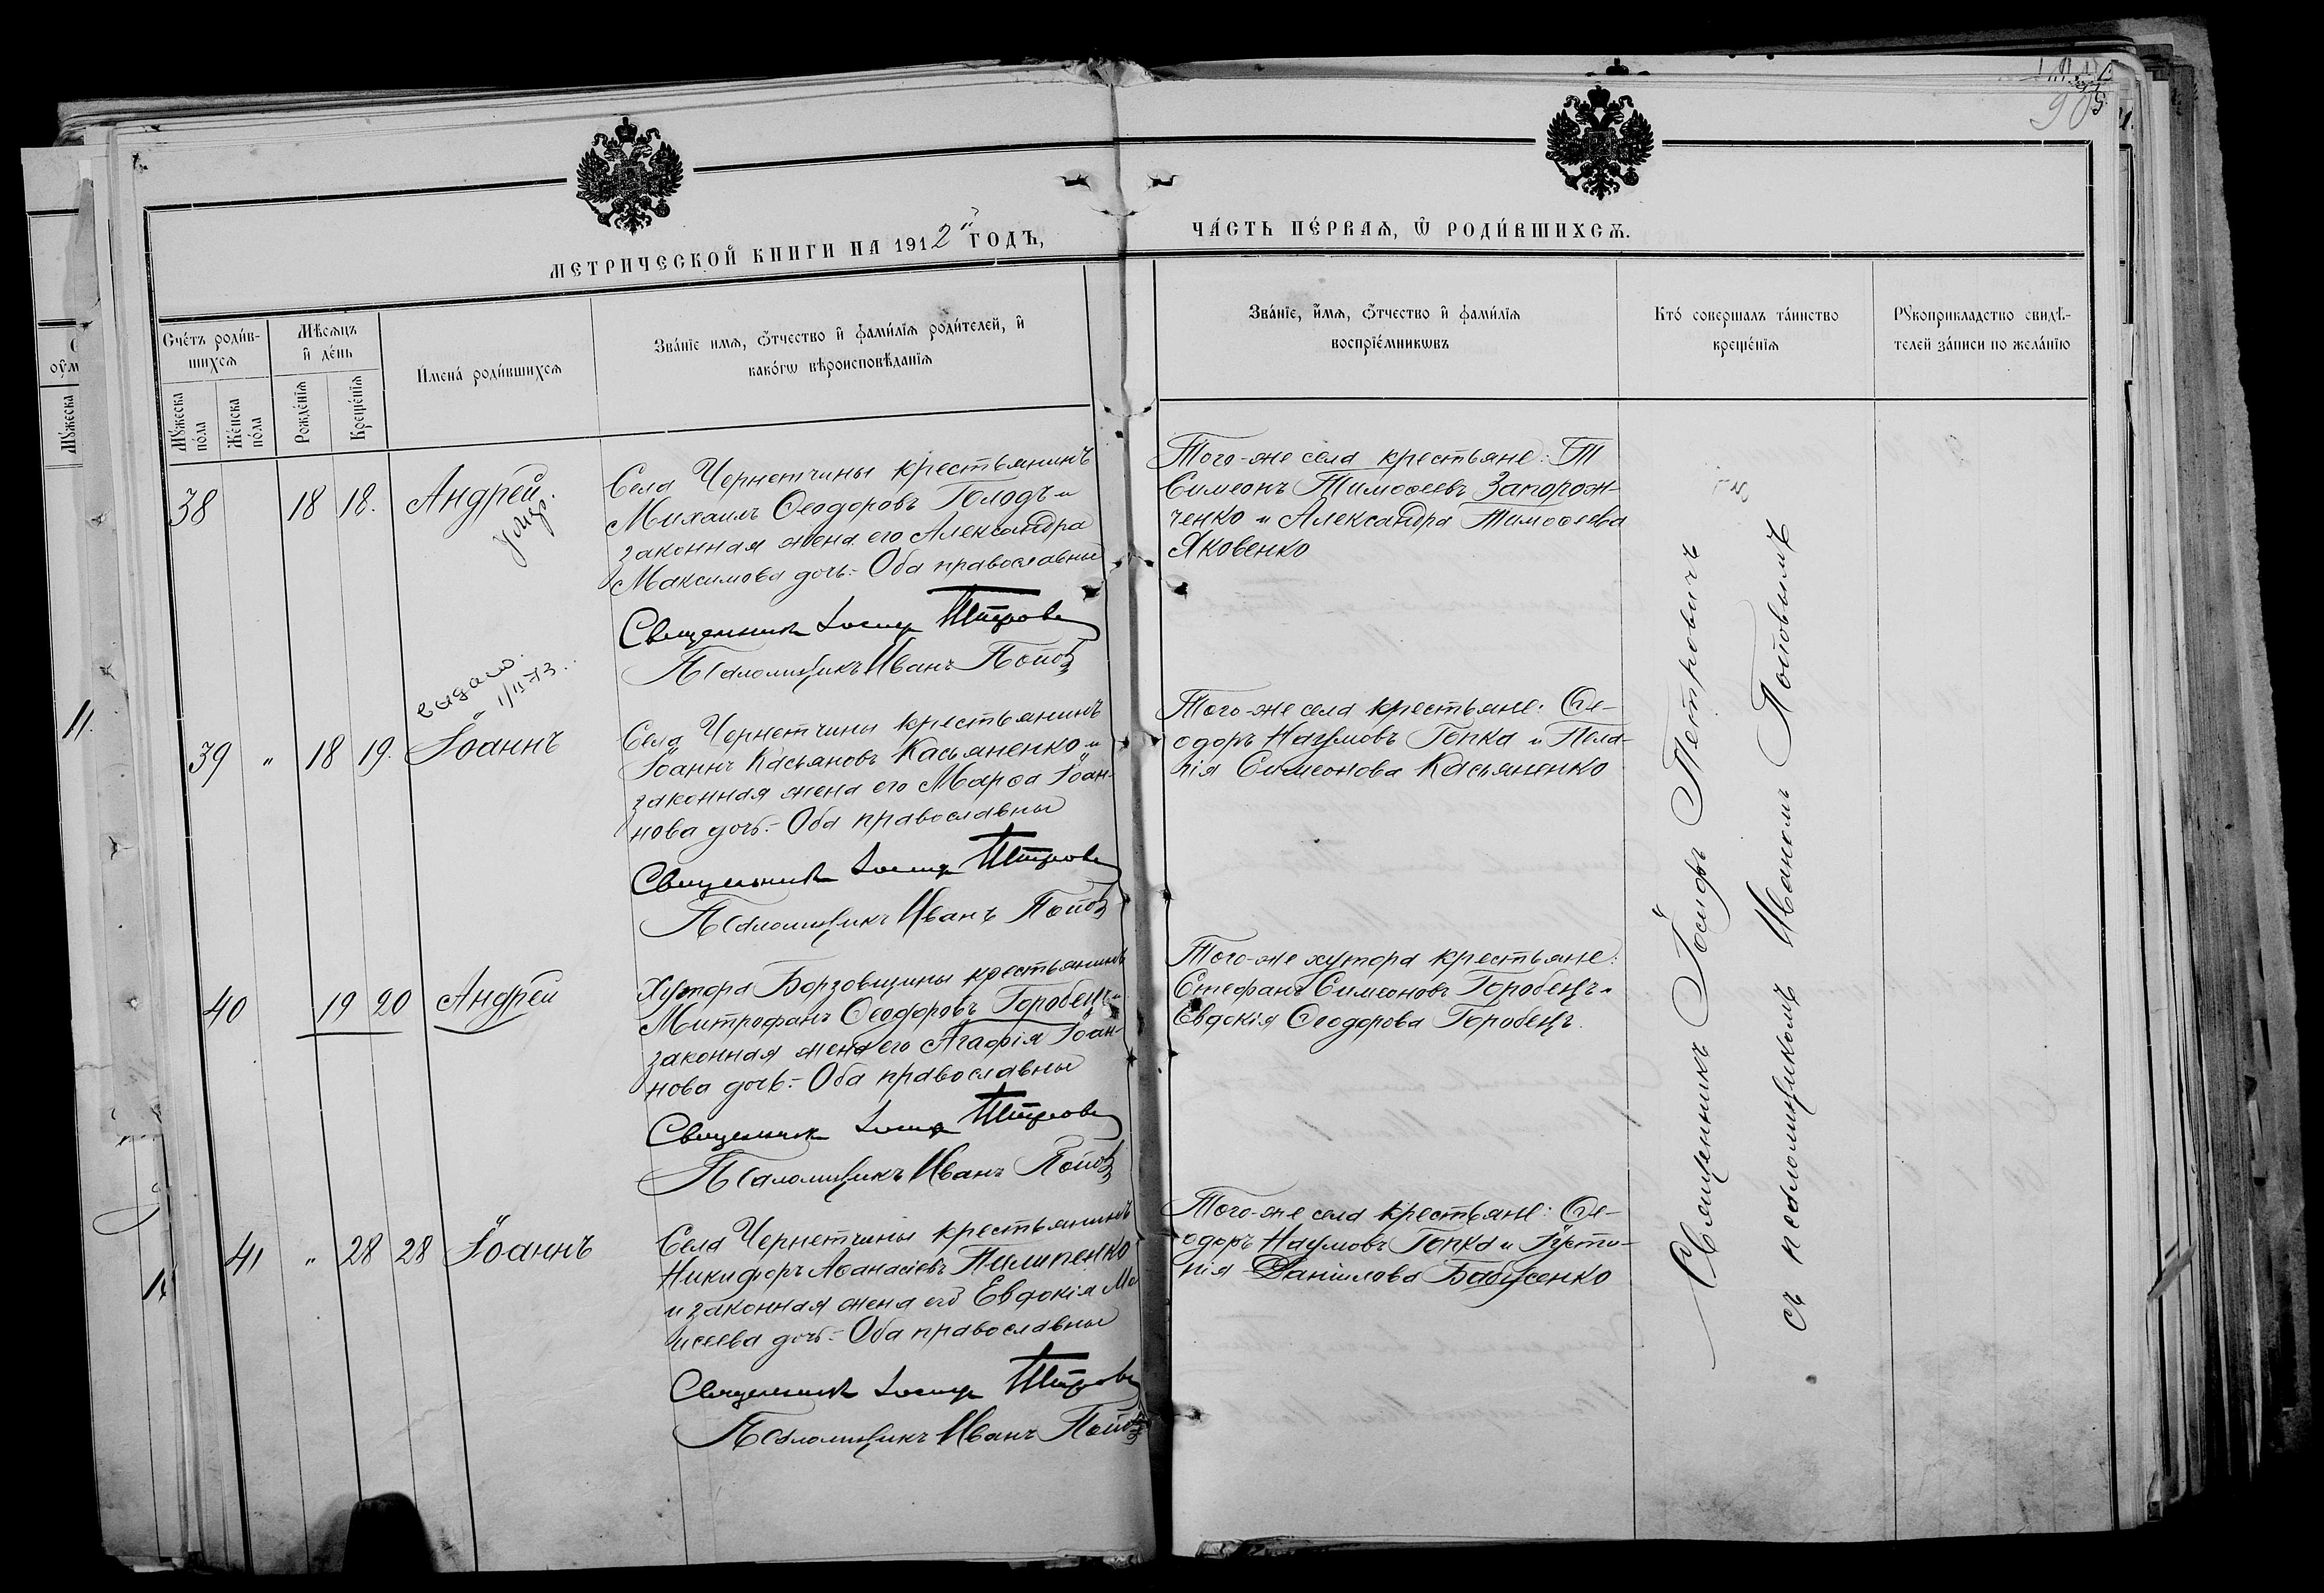 90
МЕТРИЧЕСКОЙ КНИГИ НА 1912й ГОДЪ,
ЧА́СТЬ ПЕ́РВАѦ, Ѿ РОДИ́ВШИХСѦ.
Сче́тъ роди́в-
шихсѧ
Мꙋ́жеска
по́ла
Же́нска
по́ла
Мѣ́сѧцъ
и҆ де́нь
Рожде́нїѧ
Креще́нїѧ
И҆мена̀ роди́вшихсѧ
Зва́нїе имѧ, ѻ҆́тчество и҆ фами́лїѧ роди́телей, и҆
како́гѡ вѣроисповѣ́данїѧ
Зва́нїе, и҆́мѧ, ѻ҆́тчество и҆ фами́лїѧ
воспрїе́мникѡвъ
Кто́ совершалъ та́инство
креще́нїѧ
Рꙋкоприкладство свидѣ́-
телей за́писи по жела́нїю
38
18
18.
Андрей
Села Чернетчины крестьянинъ
Михаилъ Ѳеодоровъ Голодъ и
законная жена его Александра
Максимова дочь.- Оба православны
Священникъ Іосиф Петрович
Псаломщикъ Иванъ Поповъ
Того-же села крестьяне:
Симеонъ Тимоѳеевъ Запорож-
ченко и Александра Тимоѳеева
Яковенко
видано
1/II-73.
39 "
18
19.
Іоаннъ
Села Чернетчины крестьянинъ
Іоаннъ Касьяновъ Касьяненко и
законная жена его Марѳа Іоан-
нова дочь.- Оба православны
Священникъ Іосиф Петрович
Псаломщикъ Иванъ Поповъ
Того-же села крестьяне: Ѳе-
одоръ Наумовъ Гопка и Пела-
гія Симеонова Касьяненко
40
19
20
Андрей
Хутора Борзовщины крестьянинъ
Митрофанъ Ѳеодоровъ Горобецъ и
законная жена его Агафія Іоан-
нова дочь.- Оба православны
Священникъ Іосиф Петрович
Псаломщикъ Иванъ Поповъ
Того-же хутора крестьяне:
Стефанъ Симеоновъ Горобецъ и
Евдокія Ѳеодорова Горобецъ.
41 "
28
28
Іоаннъ
Села Чернетчины крестьянинъ
Никифоръ Аѳанасіевъ Пилипенко
и законная жена его Евдокія Мо
исеева дочь.- Оба православны
Священникъ Іосиф Петрович
Псаломщикъ Иванъ Поповъ
Того-же села крестьяне: Ѳе-
одоръ Наумовъ Гопка и Іусти-
нія Даніилова Бабусенко
Священникъ Іосифъ Петровичъ
съ псаломщикомъ Иваномъ Поповымъ
11.